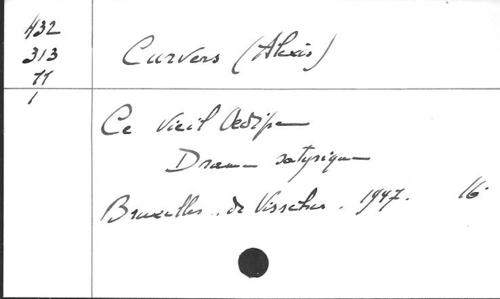 432
313
77
1
Curvers (Alexis)
Ce vieil Oedipe
Drame satyrique
Bruxelles. de Visscher. 1947. 16°